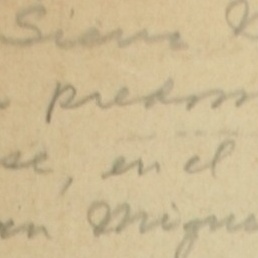 Sierra
predom
se, en el
an Migue